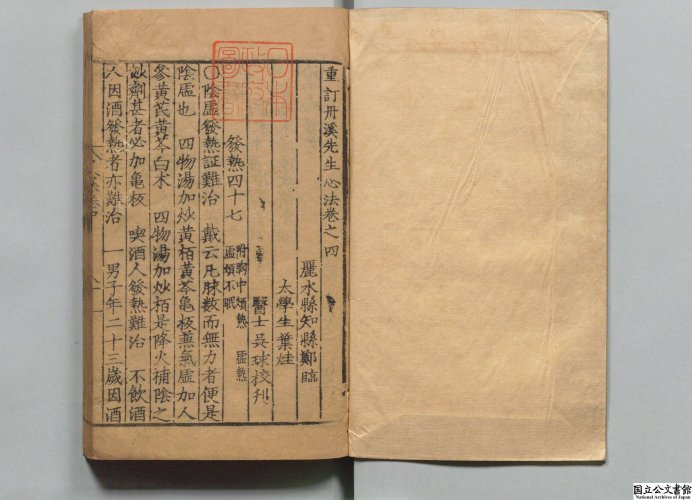 重訂丹溪先生心法卷之四
麗水縣知縣鄭臨
太學生葉烓
醫士吳球校刋
發熱四十七 附胸中煩熱 虛熱
虛煩不眠
〇陰虛發熱証難治 戴云凡脉数而無力者便是
陰虛也 四物湯加炒黃栢黃芩龜板兼氣虛加人
參黃芪黃芩白术 四物湯加炒栢是降火補陰之
妙劑甚者必加龜板 喫酒人發熱難治 不飲酒
人因酒發熱者亦難治 一男子年二十三歲因酒
国立公文書館
National Archives of Japan